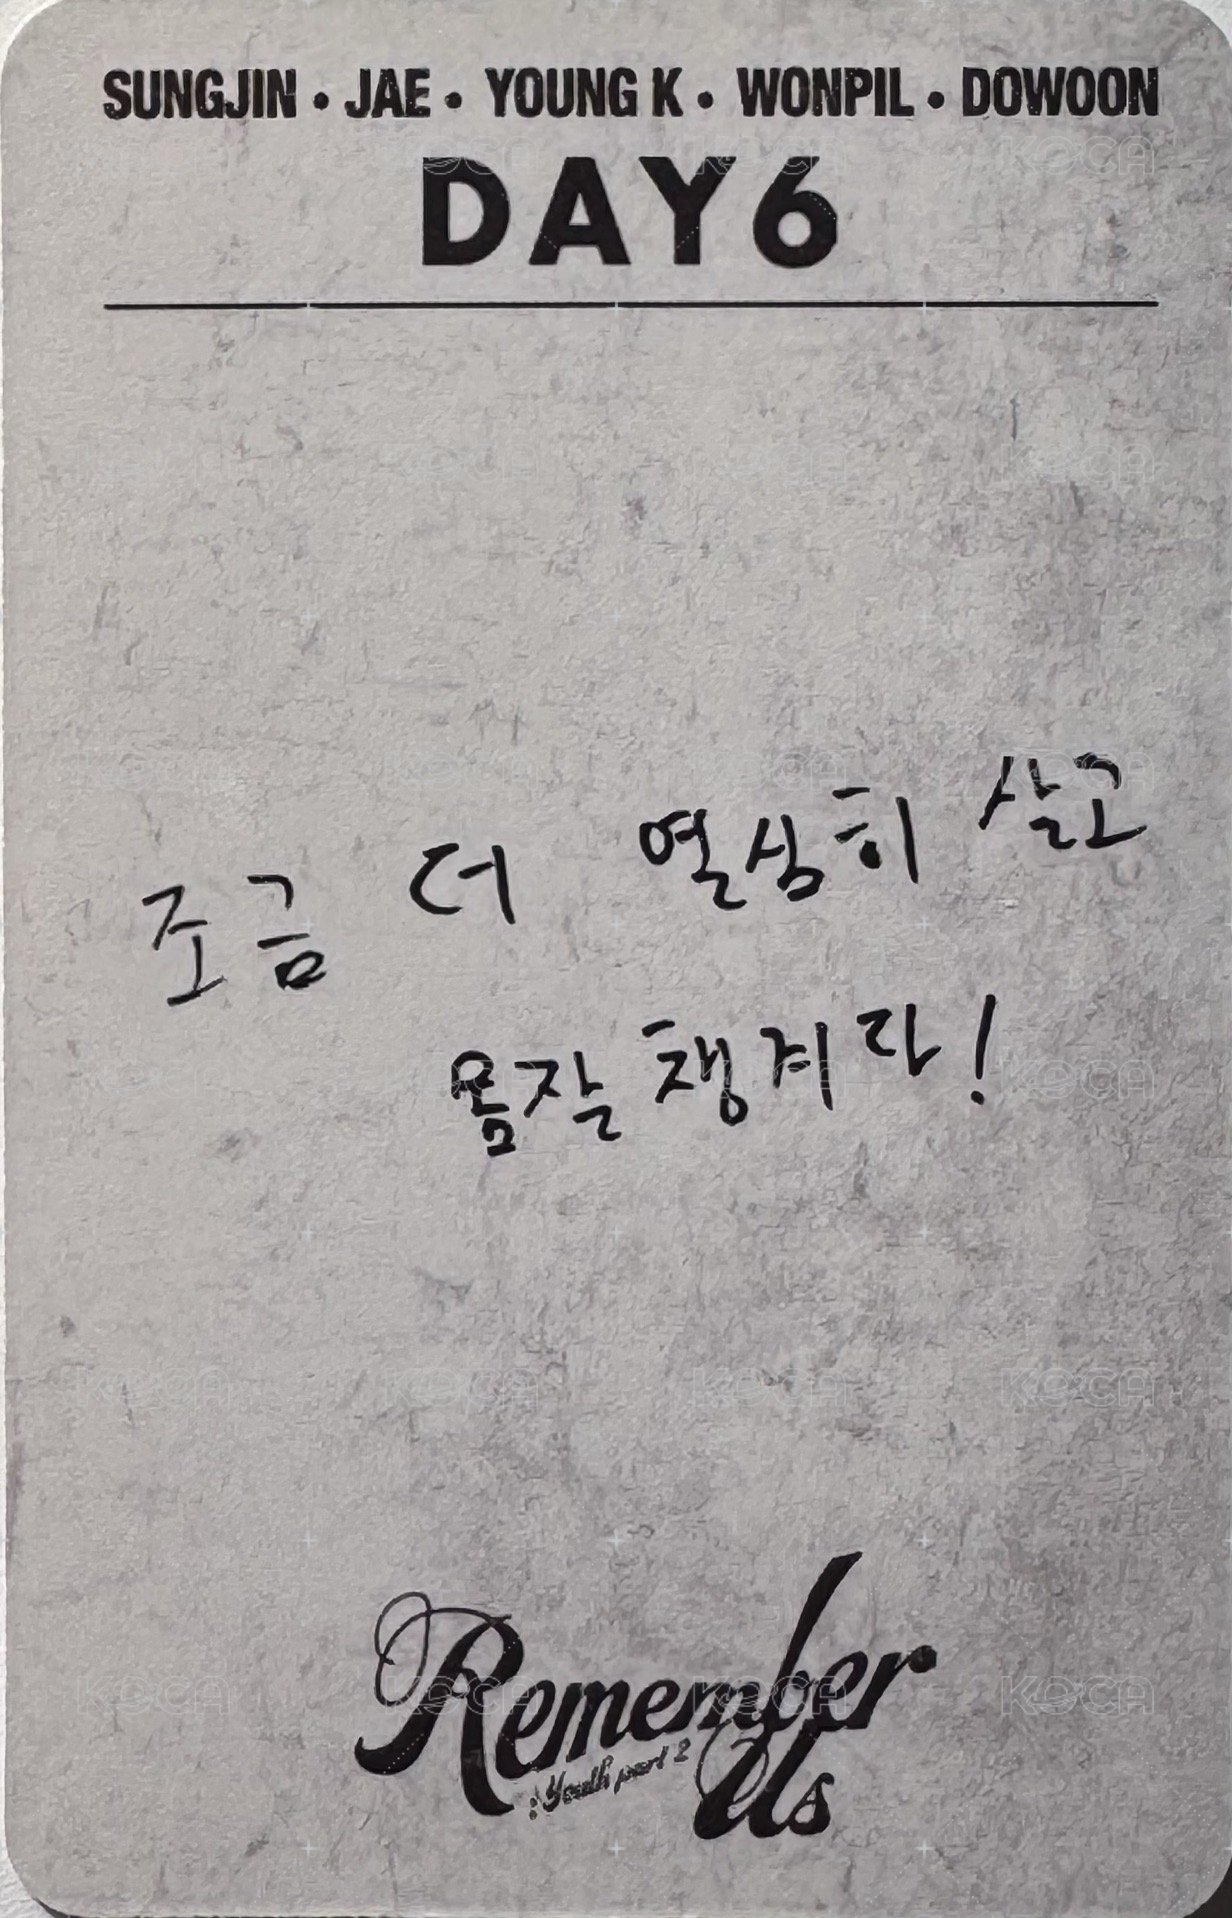 SUNGJIN • JAE • YOUNG K • WONPIL • DOWOON
DAY6
조금 더 열심히 살고
몸잘 챙겨라!
Remember
: Youth part 2
Us
KOCA